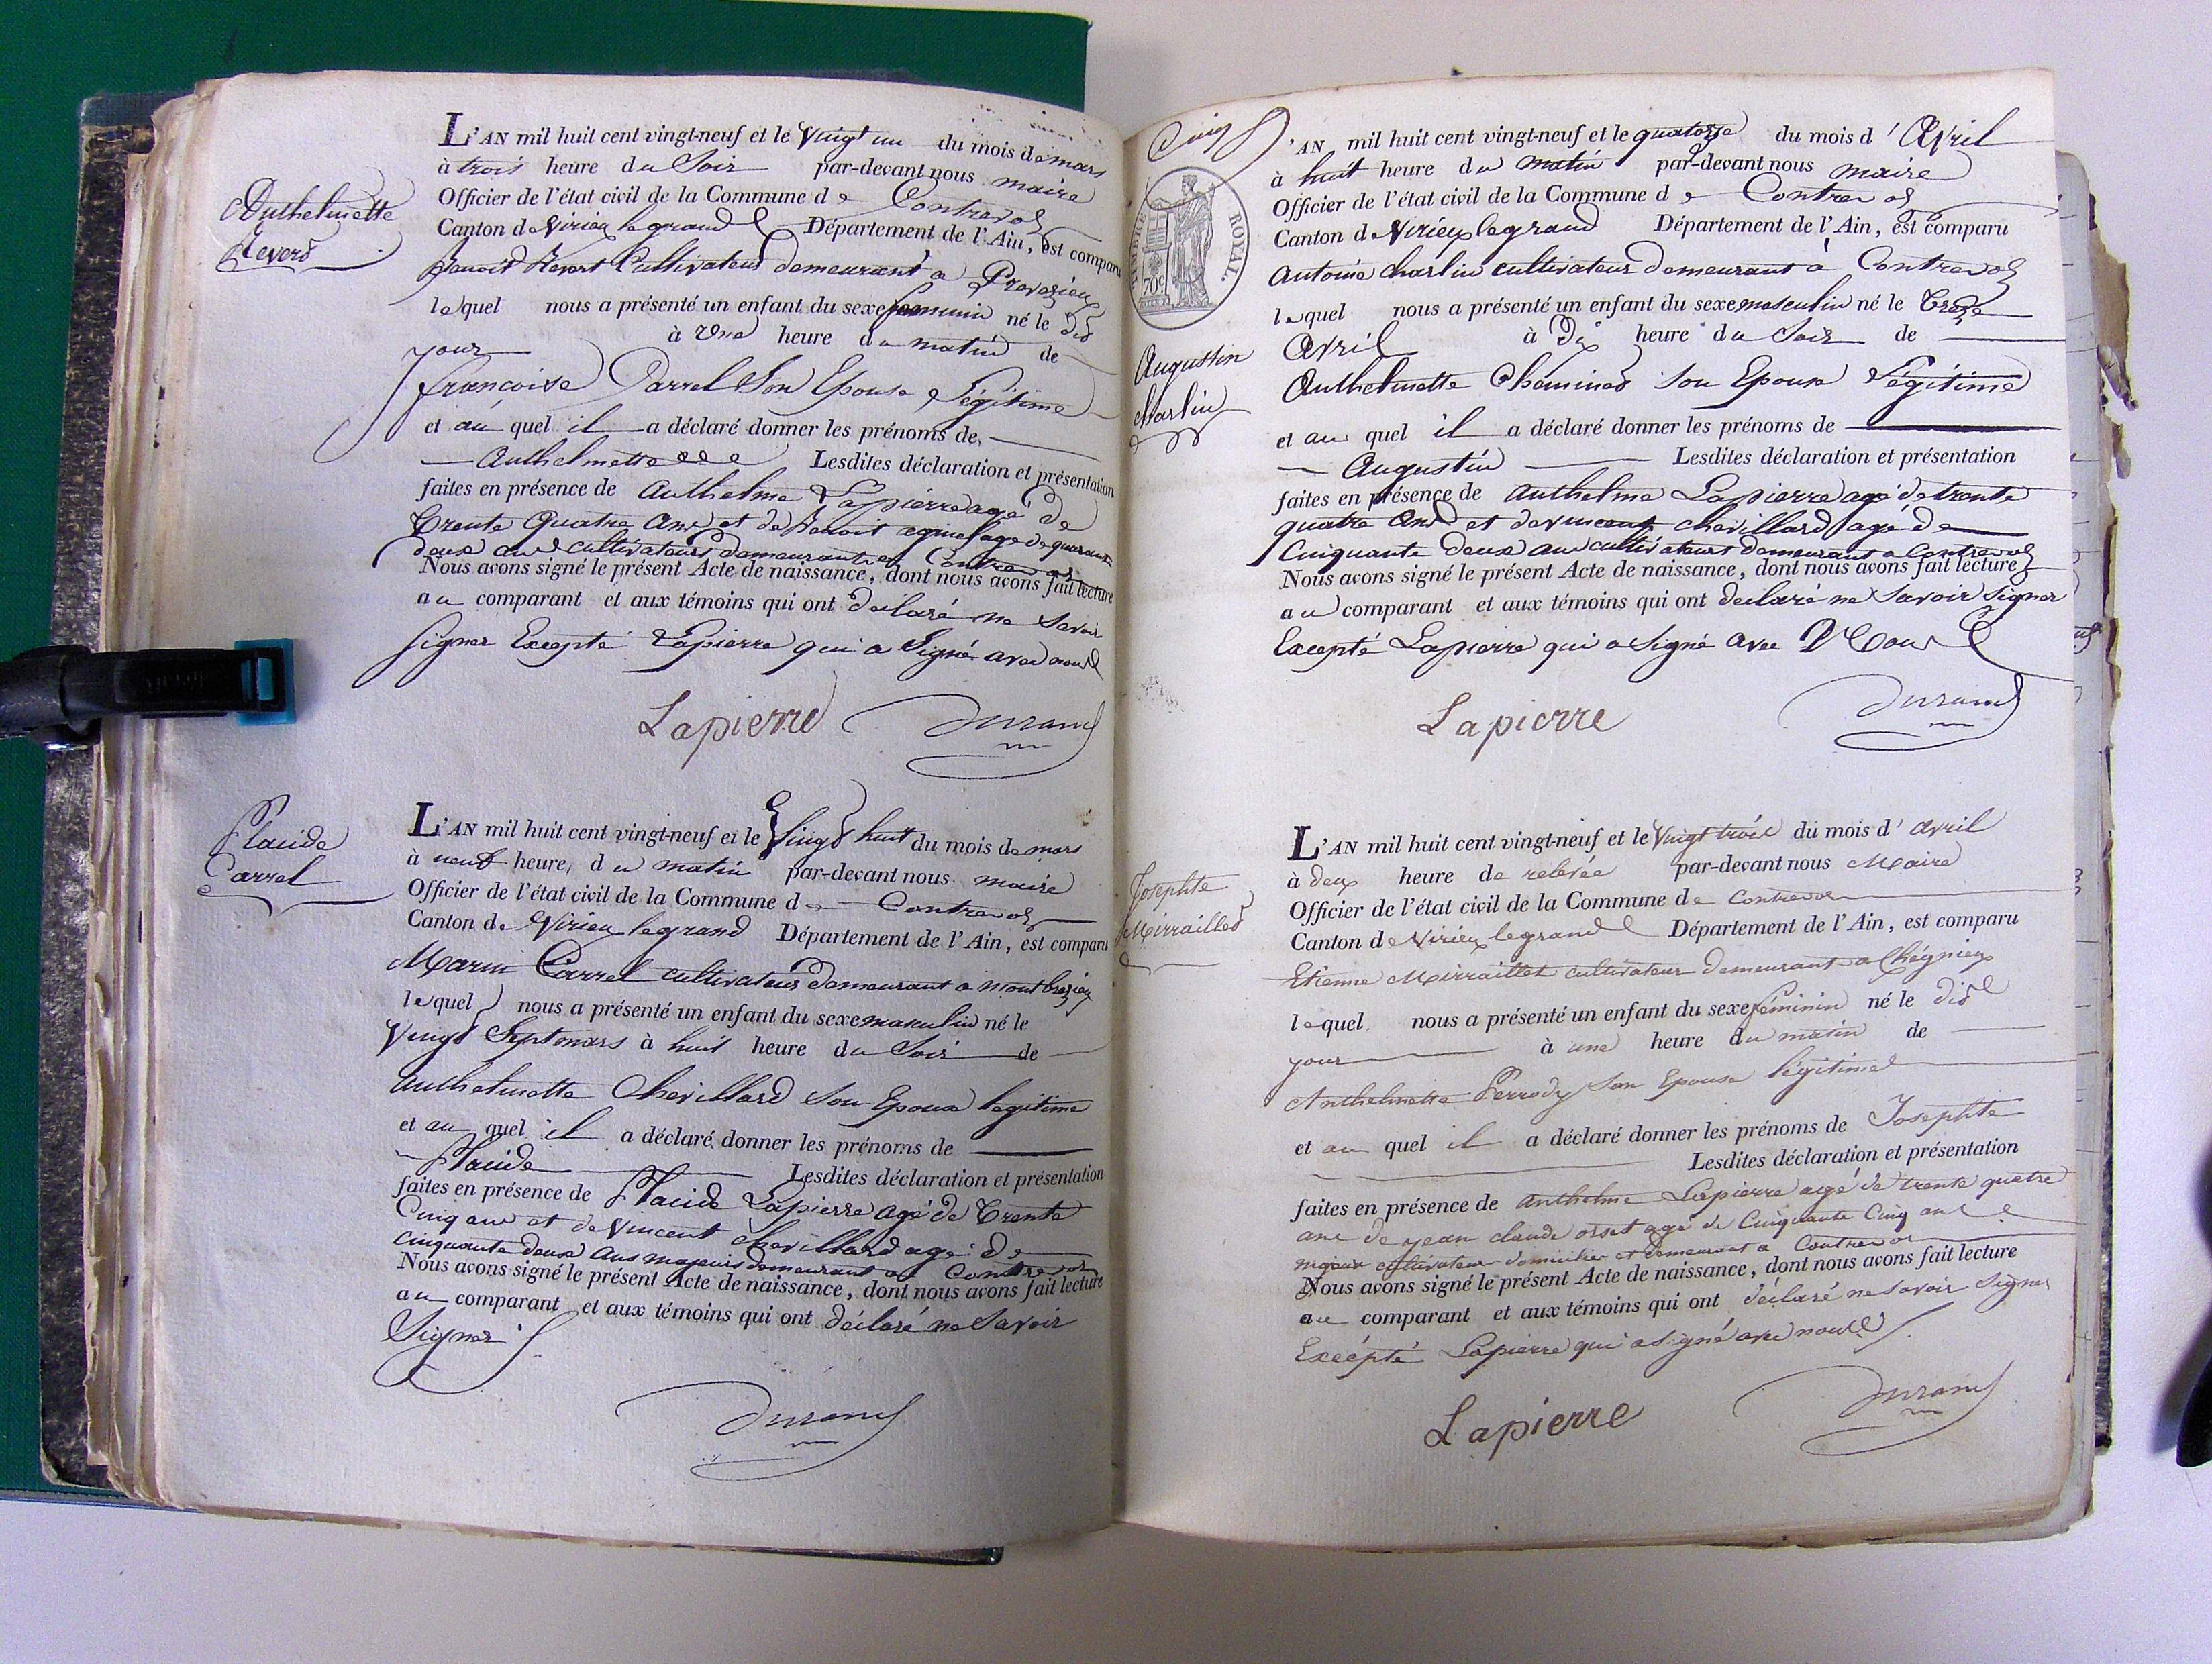 Anthelmette
Revers
L'AN mil huit cent vingt-neuf et le vingt un du mois de mars
à trois heure du Soir par-devant nous maire
Officier de l'état civil de la Commune de Contrevos
Canton de Virieu legrand Département de l'Ain, est comparu
Benoit Revert Cultivateur demeurant a
lequel nous a présenté un enfant du sexe feminin né le dis
jour à une heure du matin de
francoise Carrel Son Epouse Légitime
et au quel il a déclaré donner les prénoms de
Anthelmette Lesdites déclaration et présentation
faites en présence de Anthelme Lapierre agé de
Trente Quatre Ans et de Benoit agé de quarante
deux ans cultivateurs demeurant a Contrevos
Nous avons signé le présent Acte de naissance, dont nous avons fait lecture
au comparant et aux témoins qui ont declaré ne Savoir
Signer Excepté Lapierre qui a Signé avec nous
Lapierre Durand
Placide
Carrel
L'AN mil huit cent vingt-neuf et le Vingt huit du mois de mars
à neuf heure, du matin par-devant nous maire
Officier de l'état civil de la Commune de Contrevos
Canton de Virieu legrand Département de l'Ain, est comparu
Marin Carrel cultivateur demeurant a montbrezieu
lequel nous a présenté un enfant du sexe masculin né le
Vingt Sept mars à huit heure du Soir de
Anthelmette Chevillard Son Epouse legitime
et au quel il a déclaré donner les prénoms de
Placide Lesdites déclaration et présentation
faites en présence de Placide Lapierre agé de Trente
Cinq ans et de Vincent chevillard agé de
Cinquante deux Ans majeurs demeurant a Contrevos
Nous avons signé le présent Acte de naissance, dont nous avons fait lecture
au comparant et aux témoins qui ont déclaré ne Savoir
Signer
Durand
Cinq
TIMBRE ROYAL.
70c
Augustin
Charlin
L'AN mil huit cent vingt-neuf et le quatorze du mois d'Avril
à huit heure du matin par-devant nous maire
Officier de l'état civil de la Commune de Contrevos
Canton de Virieu legrand Département de l'Ain, est comparu
Antoine Charlin cultivateur demeurant à Contrevos
lequel nous a présenté un enfant du sexe masculin né le Treze
Avril à Dix heure du Soir de
Anthelmette Cheminet son Epouse Légitime
et au quel il a déclaré donner les prénoms de
Augustin Lesdites déclaration et présentation
faites en présence de Anthelme Lapierre agé de trente
quatre Ans et de vincent chevillard agé de
Cinquante deux ans cultivateurs demeurant a Contrevos
Nous avons signé le présent Acte de naissance, dont nous avons fait lecture
au comparant et aux témoins qui ont declaré ne Savoir Signer
Excepté Lapierre qui a Signé avec Nous
Lapierre Durand
Josephte
Mirraillet
L'AN mil huit cent vingt-neuf et le Vingt trois du mois d'avril
à deux heure de relevée par-devant nous Maire
Officier de l'état civil de la Commune de Contrevos
Canton de Virieu legrand Département de l'Ain, est comparu
Etienne Mirraillet cultivateur demeurant a Chégnieux
lequel nous a présenté un enfant du sexe féminin né le dis
jour à une heure du matin de
Anthelmette Perrody son Epouse légitime
et au quel il a déclaré donner les prénoms de Josephte
Lesdites déclaration et présentation
faites en présence de anthelme Lapierre agé de trente quatre
ans de jean claude orset agé de Cinquante Cinq ans
majeur cultivateur domicilier et demeurant a Contrevos
Nous avons signé le présent Acte de naissance, dont nous avons fait lecture
au comparant et aux témoins qui ont déclaré ne Savoir Signer
Excépté Lapierre qui a signé avec nous
Lapierre Durand